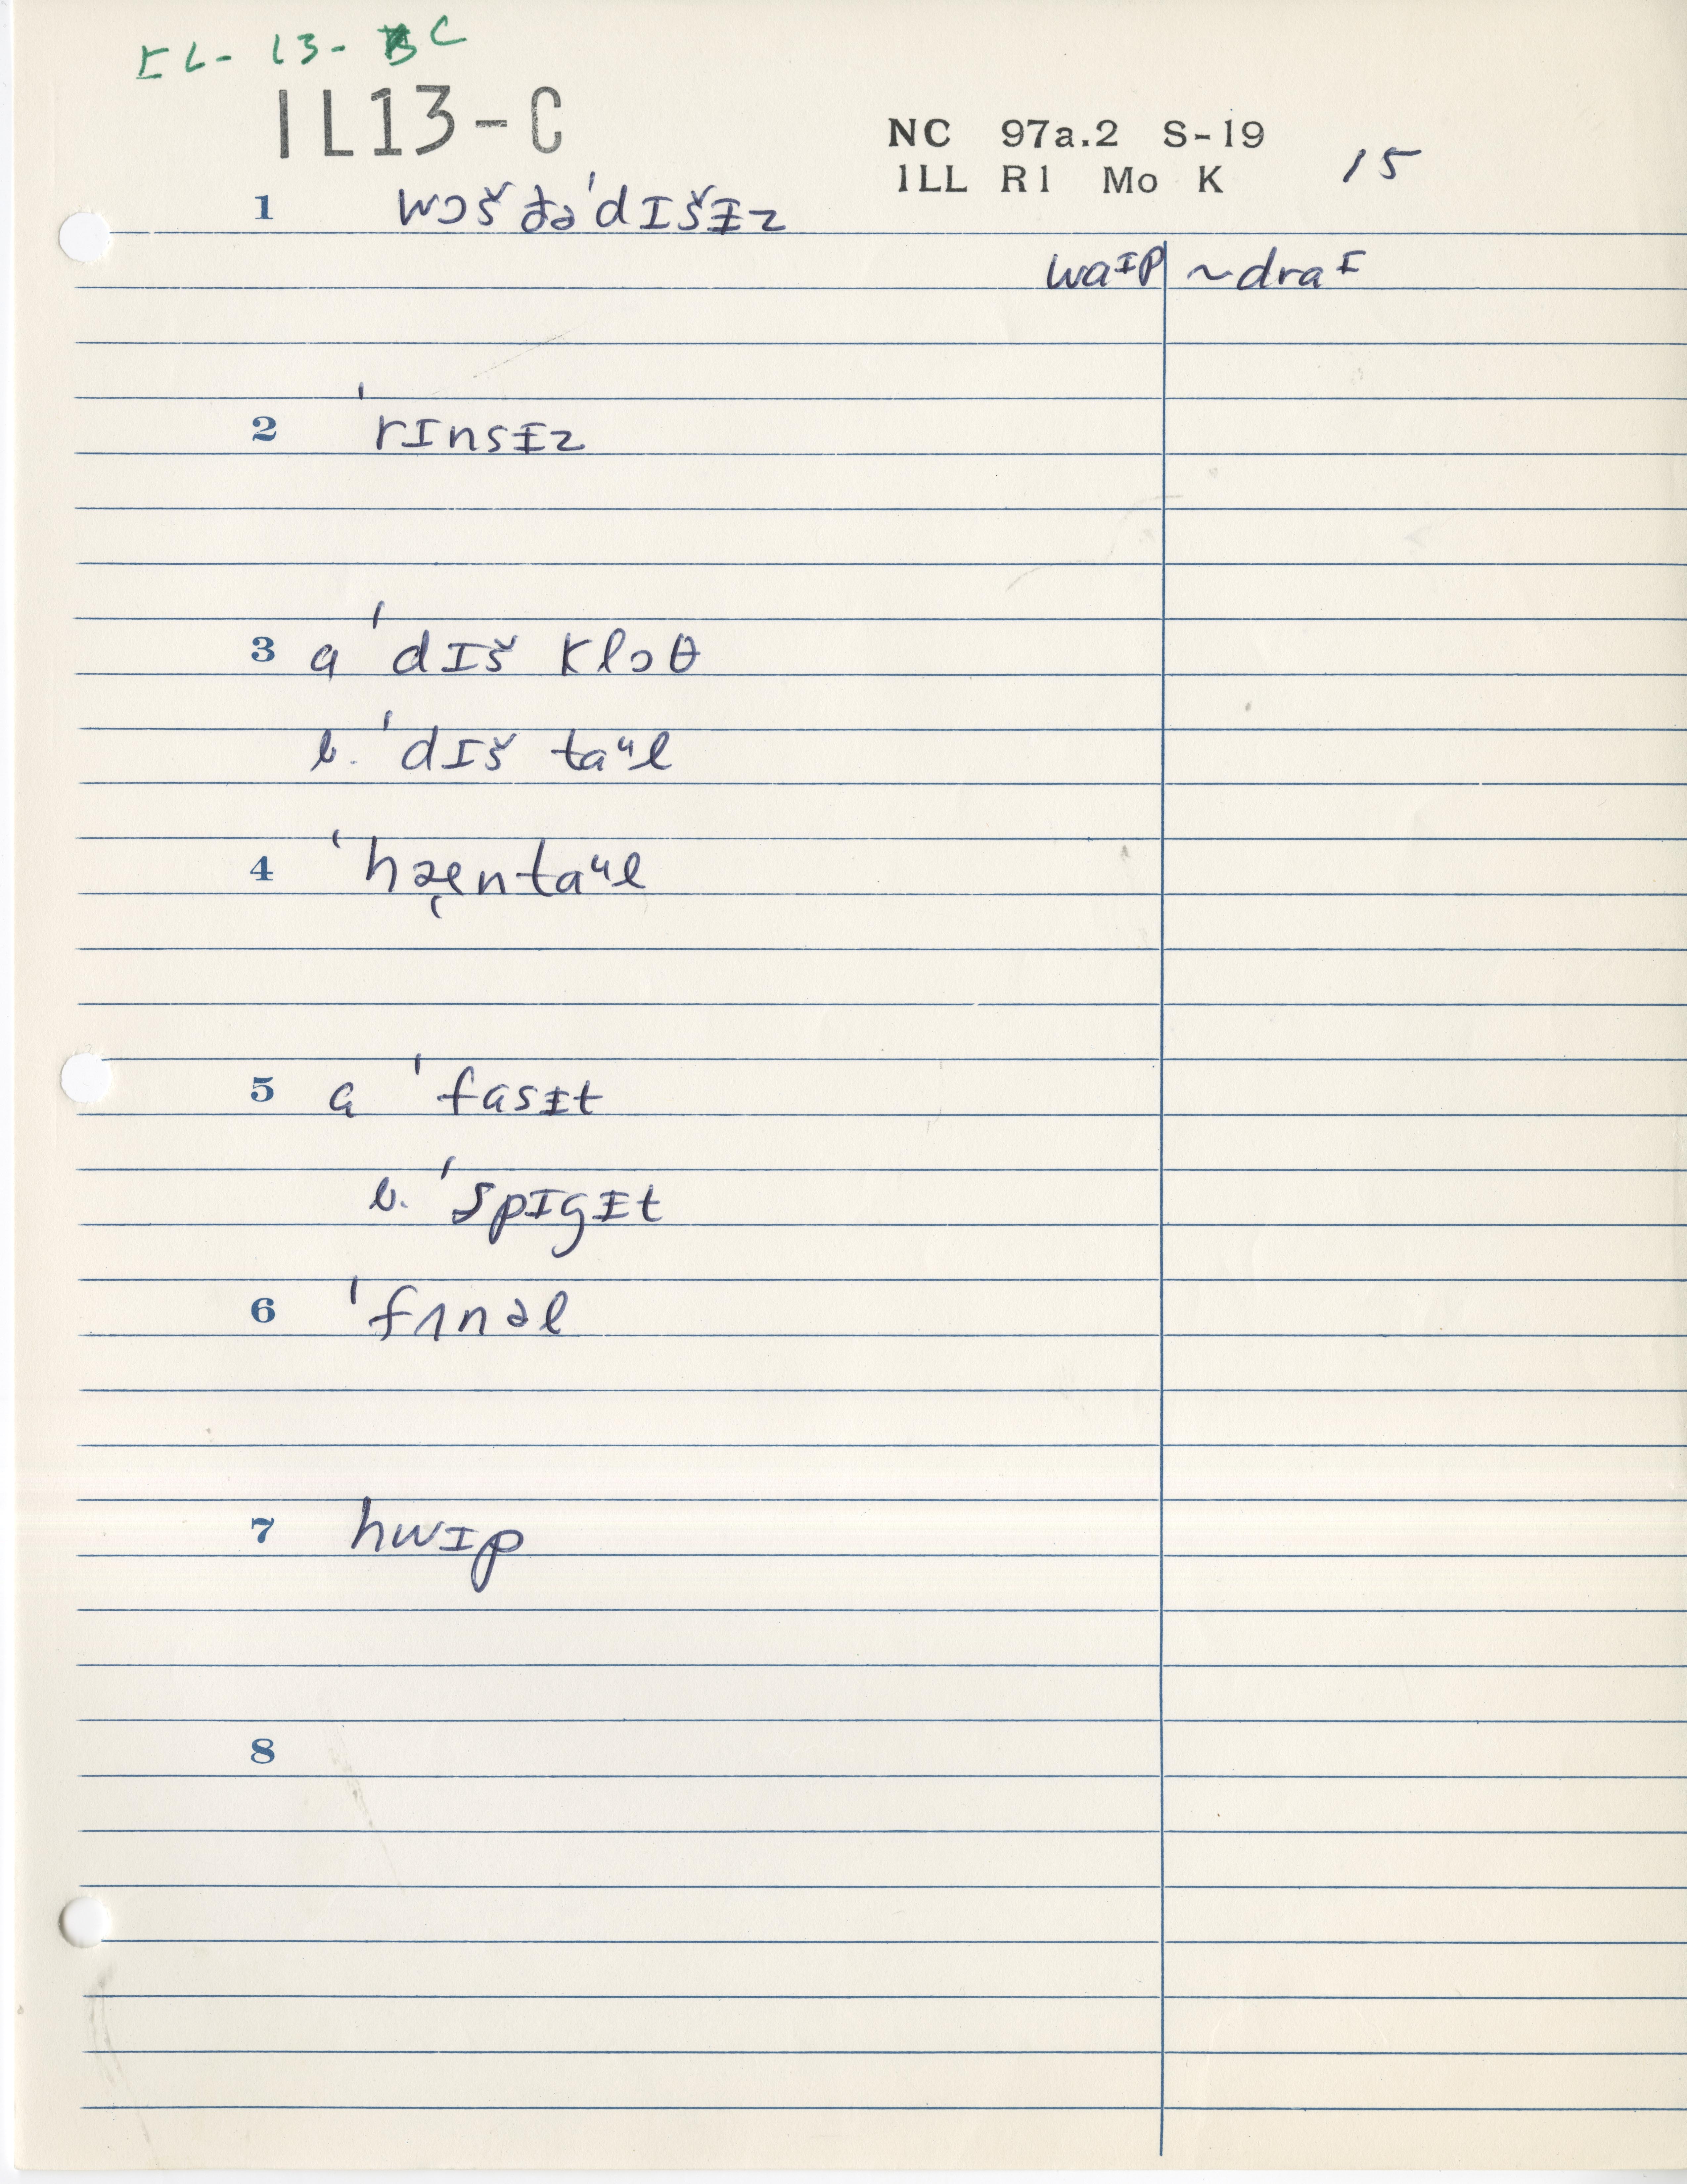 IL-13-C
IL13-C
NC 97a.2 S-19
ILL R1 Mo K 15
1 wɔš ðə ˈdɪšɪ̵z
waɪp ~ draɪ
2 ˈrɪnsɪ̵z
3 a ˈdɪš klɔθ
b. ˈdɪš taᵘl
4 ˈhæ̨ntaᵘl
5 a ˈfasɪ̵t
b. ˈspɪgɪ̵t
6 ˈfʌnəl
7 hwɪp
8